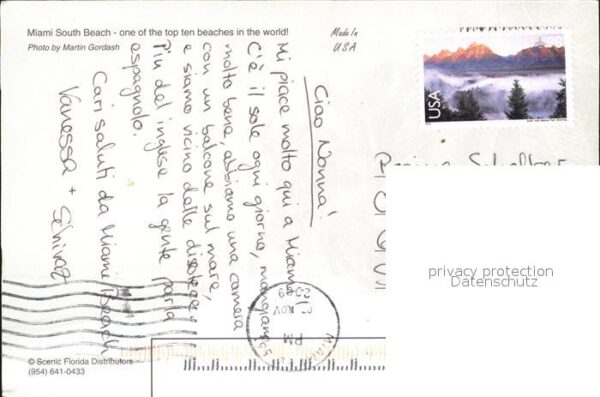 Miami South Beach - one of the top ten beaches in the world!
Photo by Martin Gordash
Made In
USA
USA
Ciao Nonna!
Mi piace molto qui a Miami.
C'è il sole ogni giorno, mangiamo
molto bene, abbiamo una camera
con un balcone sul mare,
e siamo vicino delle discoteche.
Più del inglese la gente parla
espagnolo.
Cari saluti da Miami Beach
Vanessa +
privacy protection
Datenschutz
NOV
PM
© Scenic Florida Distributors
(954) 641-0433